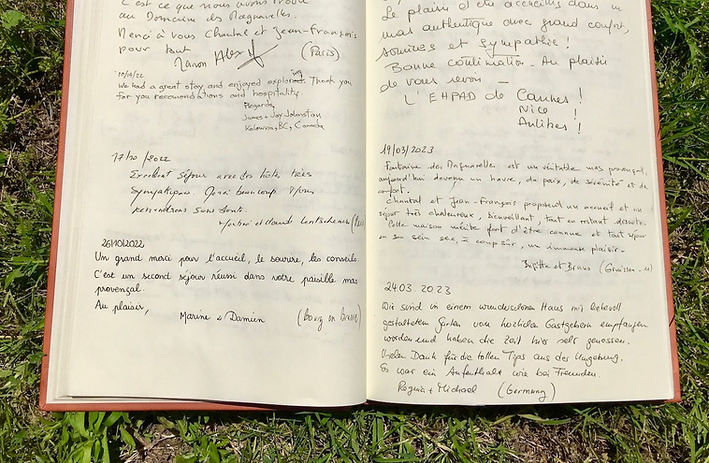 C'est ce que nous avons trouvé
au Domaine des Maquarelles.
Merci à vous Chantal et Jean-François
pour tout
Manon Alex (Paris)
10/10/22
We had a great stay and enjoyed exploring. Thank you
for you recomendations and hospitality.
Regards,
James + Joy Johnston
Kelowna, BC, Canada
17/10/2022
Excellent séjour avec des hôtes très
sympathiques. Merci beaucoup. Nous
reviendrons sans doute.
26/10/2022
Un grand merci pour l'accueil, le sourire, les conseils.
C'est un second séjour réussi dans votre paisible mas
provençal.
Au plaisir,
Marine & Damien (Bourg en Bresse)
Le plaisir d'être accueillis dans un
mas authentique avec grand confort,
sourires et sympathie!
Bonne continuation. Au plaisir
de vous revoir –
L'EHPAD de Cannes!
Nice!
Antibes!
19/03/2023
des Maquarelles est un véritable mas provençal,
aujourd'hui devenu un havre, de paix, de sérénité et de
confort.
Chantal et Jean-François proposent un accueil et un
séjour très chaleureux, bienveillant, tout en restant discrets.
Cette maison mérite fort d'être connue et tout séjour
en son sein sera, à coup sûr, un immense plaisir.
Brigitte et Bruno (Gruissan - 11)
24.03.2023
Wir sind in einem wunderschönen Haus mit liebevoll
gestaltetem Garten von herzlichen Gastgebern empfangen
worden und haben die Zeit hier sehr genossen.
Vielen Dank für die tollen Tips aus der Umgebung.
Es war ein Aufenthalt wie bei Freunden
Regina + Michael (Germany)